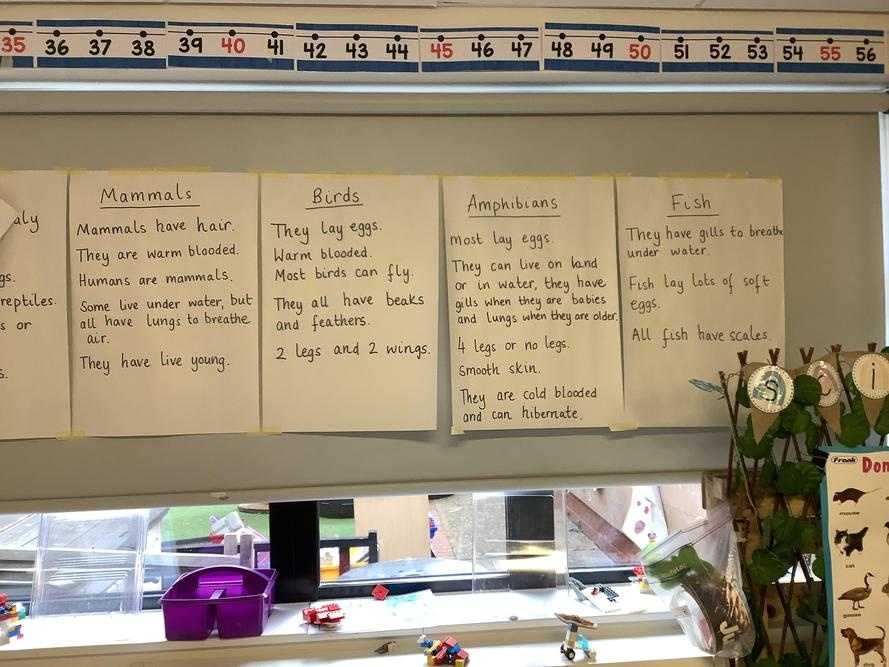 35 36 37 38 39 40 41 42 43 44 45 46 47 48 49 50 51 52 53 54 55 56
aly
gs.
reptiles.
s or
s.
Mammals
Mammals have hair.
They are warm blooded.
Humans are mammals.
Some live under water, but
all have lungs to breathe
air.
They have live young.
Birds
They lay eggs.
Warm blooded.
Most birds can fly.
They all have beaks
and feathers.
2 legs and 2 wings.
Amphibians
most lay eggs.
They can live on land
or in water, they have
gills when they are babies
and lungs when they are older.
4 legs or no legs.
Smooth skin.
They are cold blooded
and can hibernate.
Fish
They have gills to breathe
under water.
Fish lay lots of soft
eggs.
All fish have scales.
S c i
Frank
Don
mouse
cat
goose